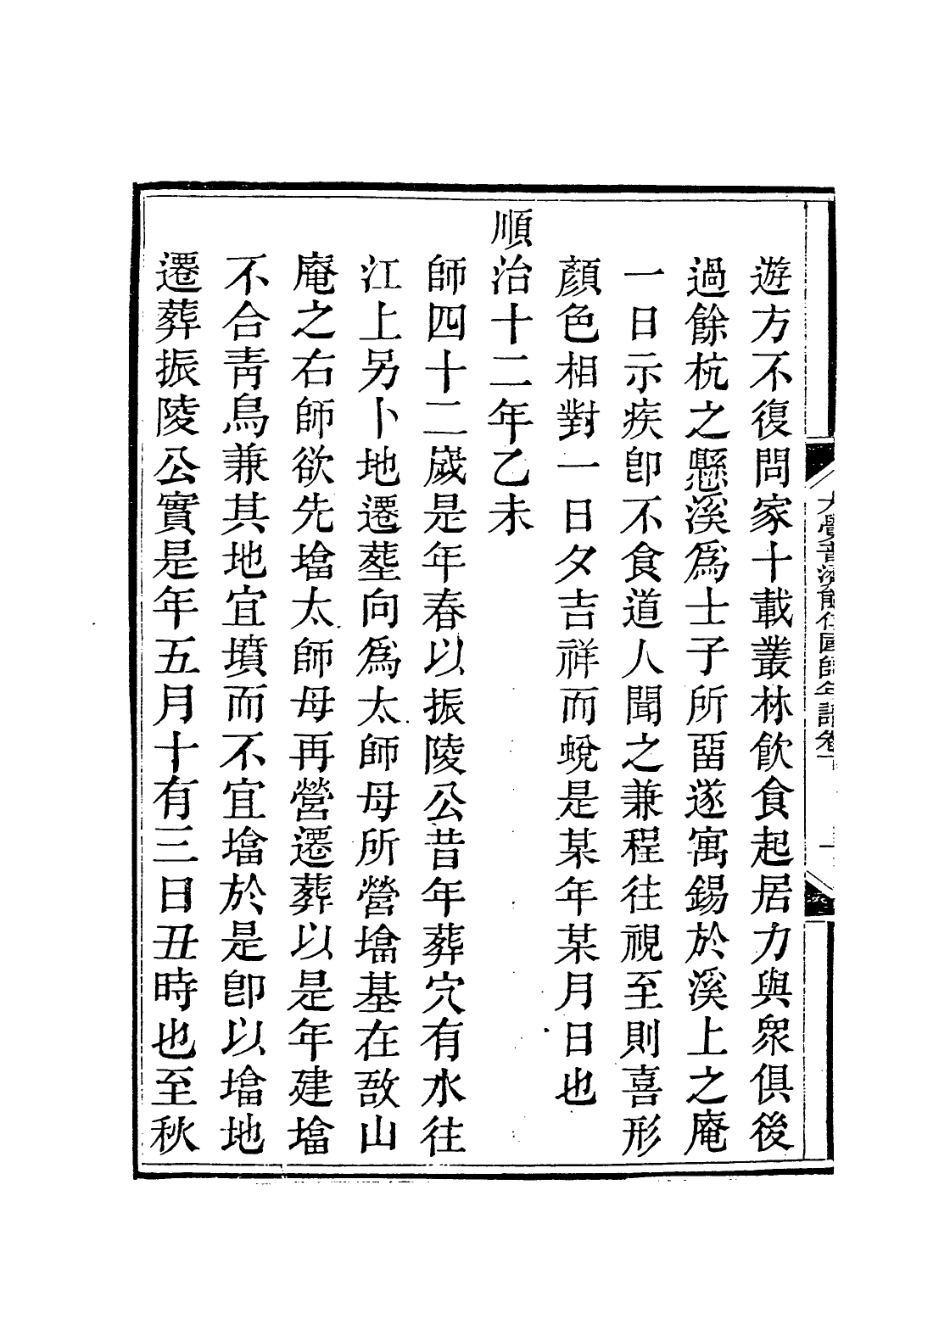 遊方不復問家十載叢林飲食起居力與眾俱後
過餘杭之懸溪爲士子所畱遂寓錫於溪上之庵
一日示疾卽不食道人聞之兼程往視至則喜形
顏色相對一日夕吉祥而蛻是某年某月日也
順治十二年乙未
師四十二歲是年春以振陵公昔年葬穴有水往
江上另卜地遷塟向爲太師母所營墖基在敔山
庵之右師欲先墖太師母再營遷葬以是年建墖
不合青烏兼其地宜墳而不宜墖於是卽以墖地
遷葬振陵公實是年五月十有三日丑時也至秋